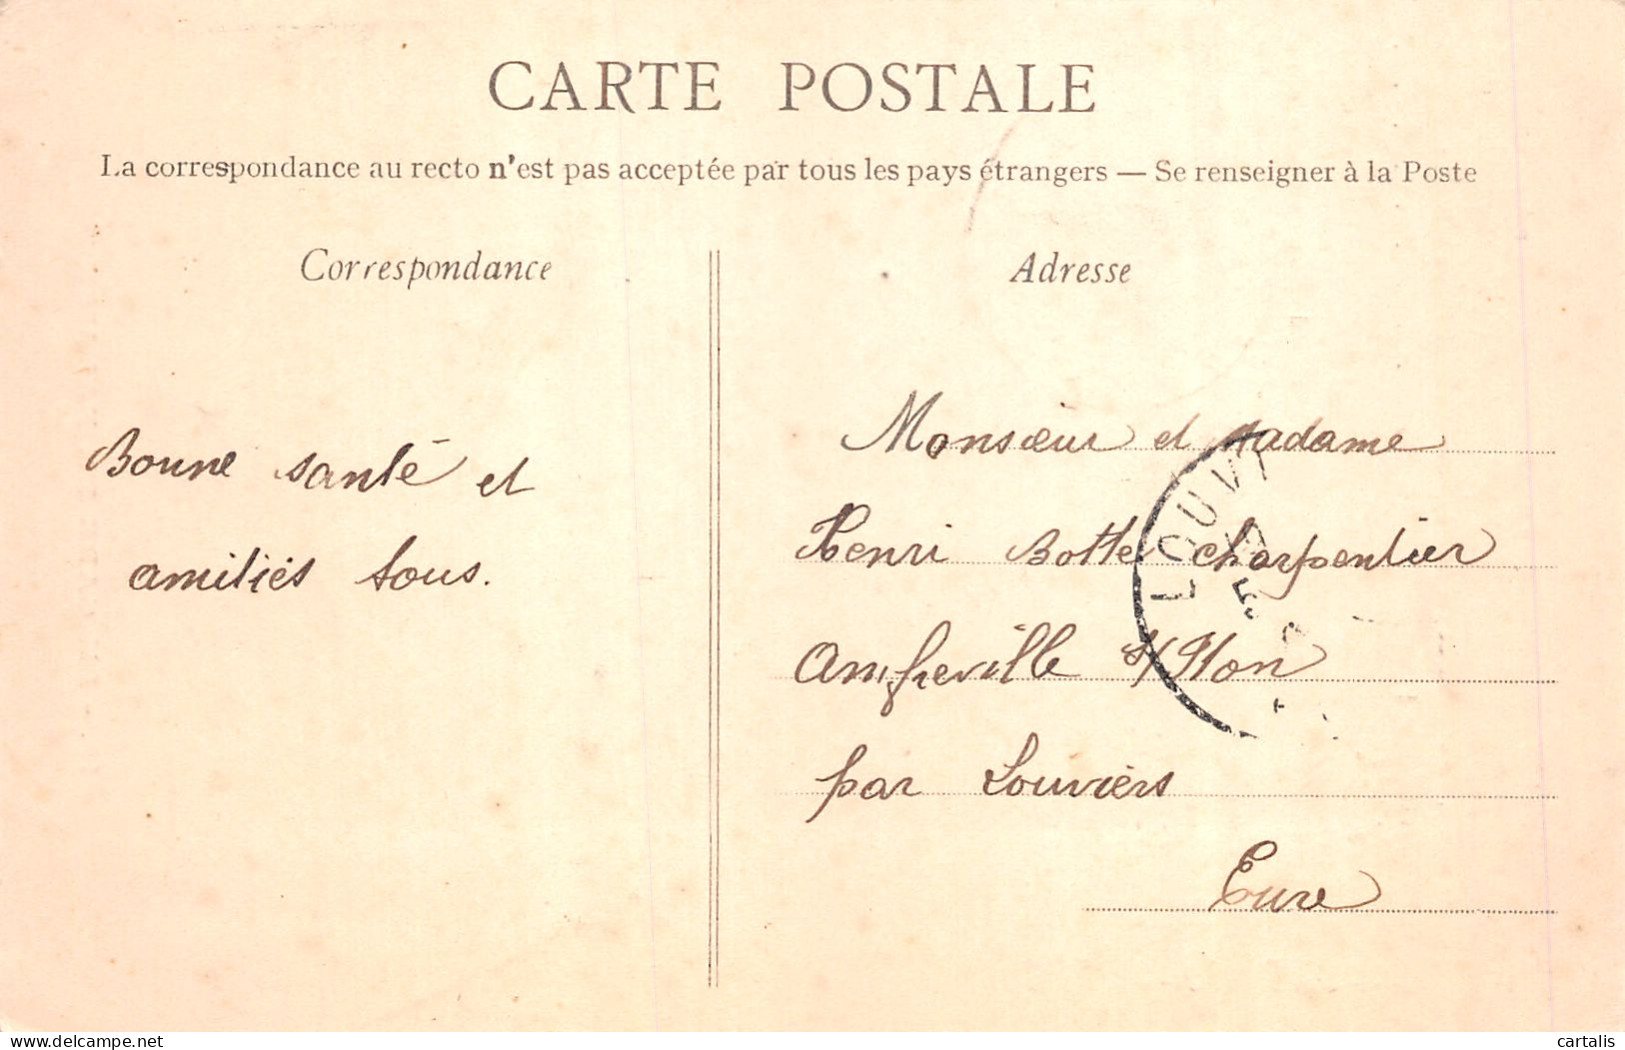 CARTE POSTALE
La correspondance au recto n'est pas acceptée par tous les pays étrangers — Se renseigner à la Poste
Correspondance
Adresse
Bonne santé et
amitiés tous.
Monsieur et Madame
Henri Botte charpentier
Amfreville s/ Iton
par Louviers
Eure
LOUVI
delcampe.net
cartalis